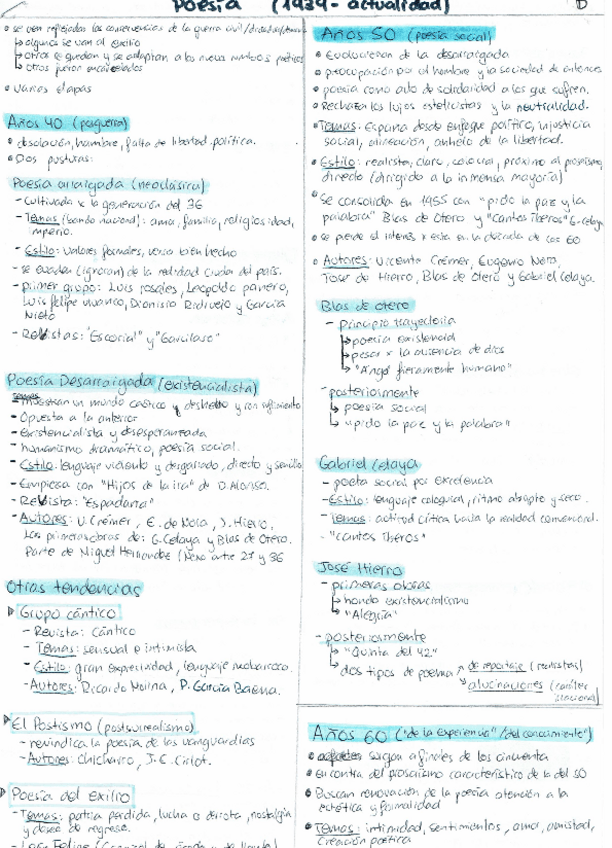 Poesía (1939 - actualidad)
• se ven reflejadas las consecuencias de la guerra civil/
↳ algunos se van al exilio
↳ otros se quedan y se adaptan a los nuevos rumbos poéticos
↳ otros fueron encarcelados
• varias etapas
Años 40 (posguerra)
• desolación, hambre, falta de libertad política.
• Dos posturas:
Poesía arraigada (neoclásica)
- Cultivada x la generación del 36
- Temas (bando nacional): amor, familia, religiosidad, imperio.
- Estilo: valores formales, verso bien hecho
- se evadan (ignoran) de la realidad cruda del país.
- primer grupo: Luis rosales, Leopoldo panero,
Luis felipe vivanco, Dionisio Ridruejo y García
Nieto
- Revistas: "Escorial" y "Garcilaso"
Poesía Desarraigada (existencialista)
- Temas muestran un mundo caótico y deshecho y con sufrimiento
- Opuesta a la anterior
- existencialista y desesperanzada
- humanismo dramático, poesía social.
- Estilo: lenguaje violento y desgarrado, directo y sencillo
- Empieza con "Hijos de la ira" de D. Alonso.
- Revista: "Espadaña"
- Autores: V. Crémer, E. de Nora, J. Hierro,
Las primeras obras de: G. Celaya y Blas de Otero.
Parte de Miguel Hernández (Nexo entre 27 y 36
Otras tendencias
Grupo cántico
- Revista: Cántico
- Temas: sensual e intimista
- Estilo: gran expresividad, lenguaje neobarroco.
- Autores: Ricardo Molina, P. García Baena.
El Postismo (postsurrealismo)
- reivindica la poesía de las vanguardias
- Autores: Chicharro, J.E. Cirlot.
Poesía del exilio
- Temas: patria perdida, lucha o derrota, nostalgia
y deseo de regreso.
- León Felipe
Años 50 (poesía social)
• Evolucionan de la desarraigada
• preocupación por el hombre y la sociedad de entonces
• poesía como acto de solidaridad a los que sufren.
• Rechaza los lujos esteticistas y la neutralidad.
• Temas: España desde enfoque político, injusticia
social, alienación, anhelo de la libertad.
• Estilo: realista, claro, coloquial, próximo al prosaísmo,
directo (dirigido a la inmensa mayoría)
• Se consolida en 1955 con "pido la paz y la
palabra" Blas de Otero y "Cantos íberos" G. celaya
• se pierde el interés x esta en la década de los 60
• Autores: Vicente Crémer, Eugenio Nora,
Jose de Hierro, Blas de Otero y Gabriel Celaya.
Blas de otero
- principio trayectoria
↳ poesía existencial
↳ pesar x la ausencia de dios
↳ "Ángel fieramente humano"
- posteriormente
↳ poesía social
↳ "pido la paz y la palabra"
Gabriel Celaya
- poeta social por excelencia
- Estilo: lenguaje coloquial, ritmo abrupto y seco.
- Temas: actitud crítica hacia la realidad convencional.
- "Cantos íberos"
José Hierro
- primeras obras
↳ hondo existencialismo
↳ "Alegría"
- posteriormente
↳ "Quinta del 42"
↳ dos tipos de poemas de reportaje (realistas)
alucinaciones (carácter
irracional)
Años 60 ("de la experiencia"/"del conocimiento")
• surgen a finales de los cincuenta
• en contra del prosaísmo característico de la del 50
• Buscan renovación de la poesía atención a la
estética y formalidad
• Temas: intimidad, sentimientos, amor, amistad,
Creación poética